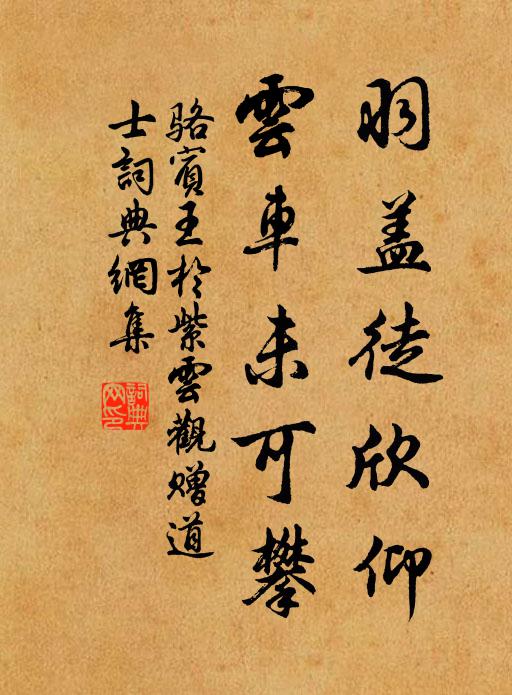 羽盖徒欣仰
雲車未可攀
骆賓王於紫雲觀赠道
士詞典網集
詞典
网印